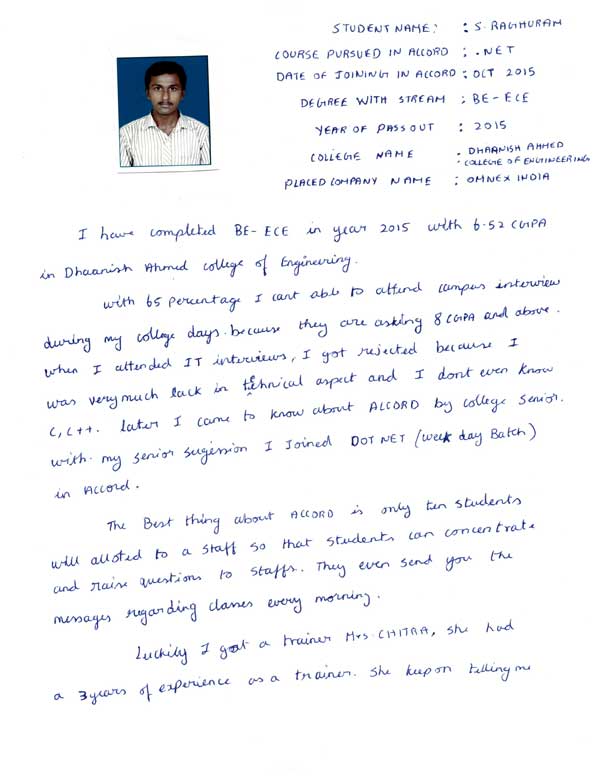 STUDENT NAME : : S. RAGHURAM
COURSE PURSUED IN ACCORD : .NET
DATE OF JOINING IN ACCORD : OCT 2015
DEGREE WITH STREAM : BE-ECE
YEAR OF PASSOUT : 2015
COLLEGE NAME : DHAANISH AHMED
: COLLEGE OF ENGINEERING
PLACED COMPANY NAME : OMNEX INDIA
I have completed BE-ECE in year 2015 with 6.52 CGPA
in Dhaanish Ahmed college of Engineering.
with 65 percentage I cant able to attend campus interview
during my college days. because they are asking 8 CGPA and above.
when I attended IT interviews, I got rejected because I
was very much lack in tehnical aspect and I dont even know
C, C++. later I came to know about ACCORD by college senior.
with my senior sugession I Joined DOT NET (week day Batch)
in Accord.
The Best thing about ACCORD is only ten students
will alloted to a staff so that students can concentrate
and raise questions to staffs. They even send you the
messages regarding classes every morning.
Luckily I got a trainer Mrs. CHITRA, she had
a 3years of experience as a trainer. She keep on telling me